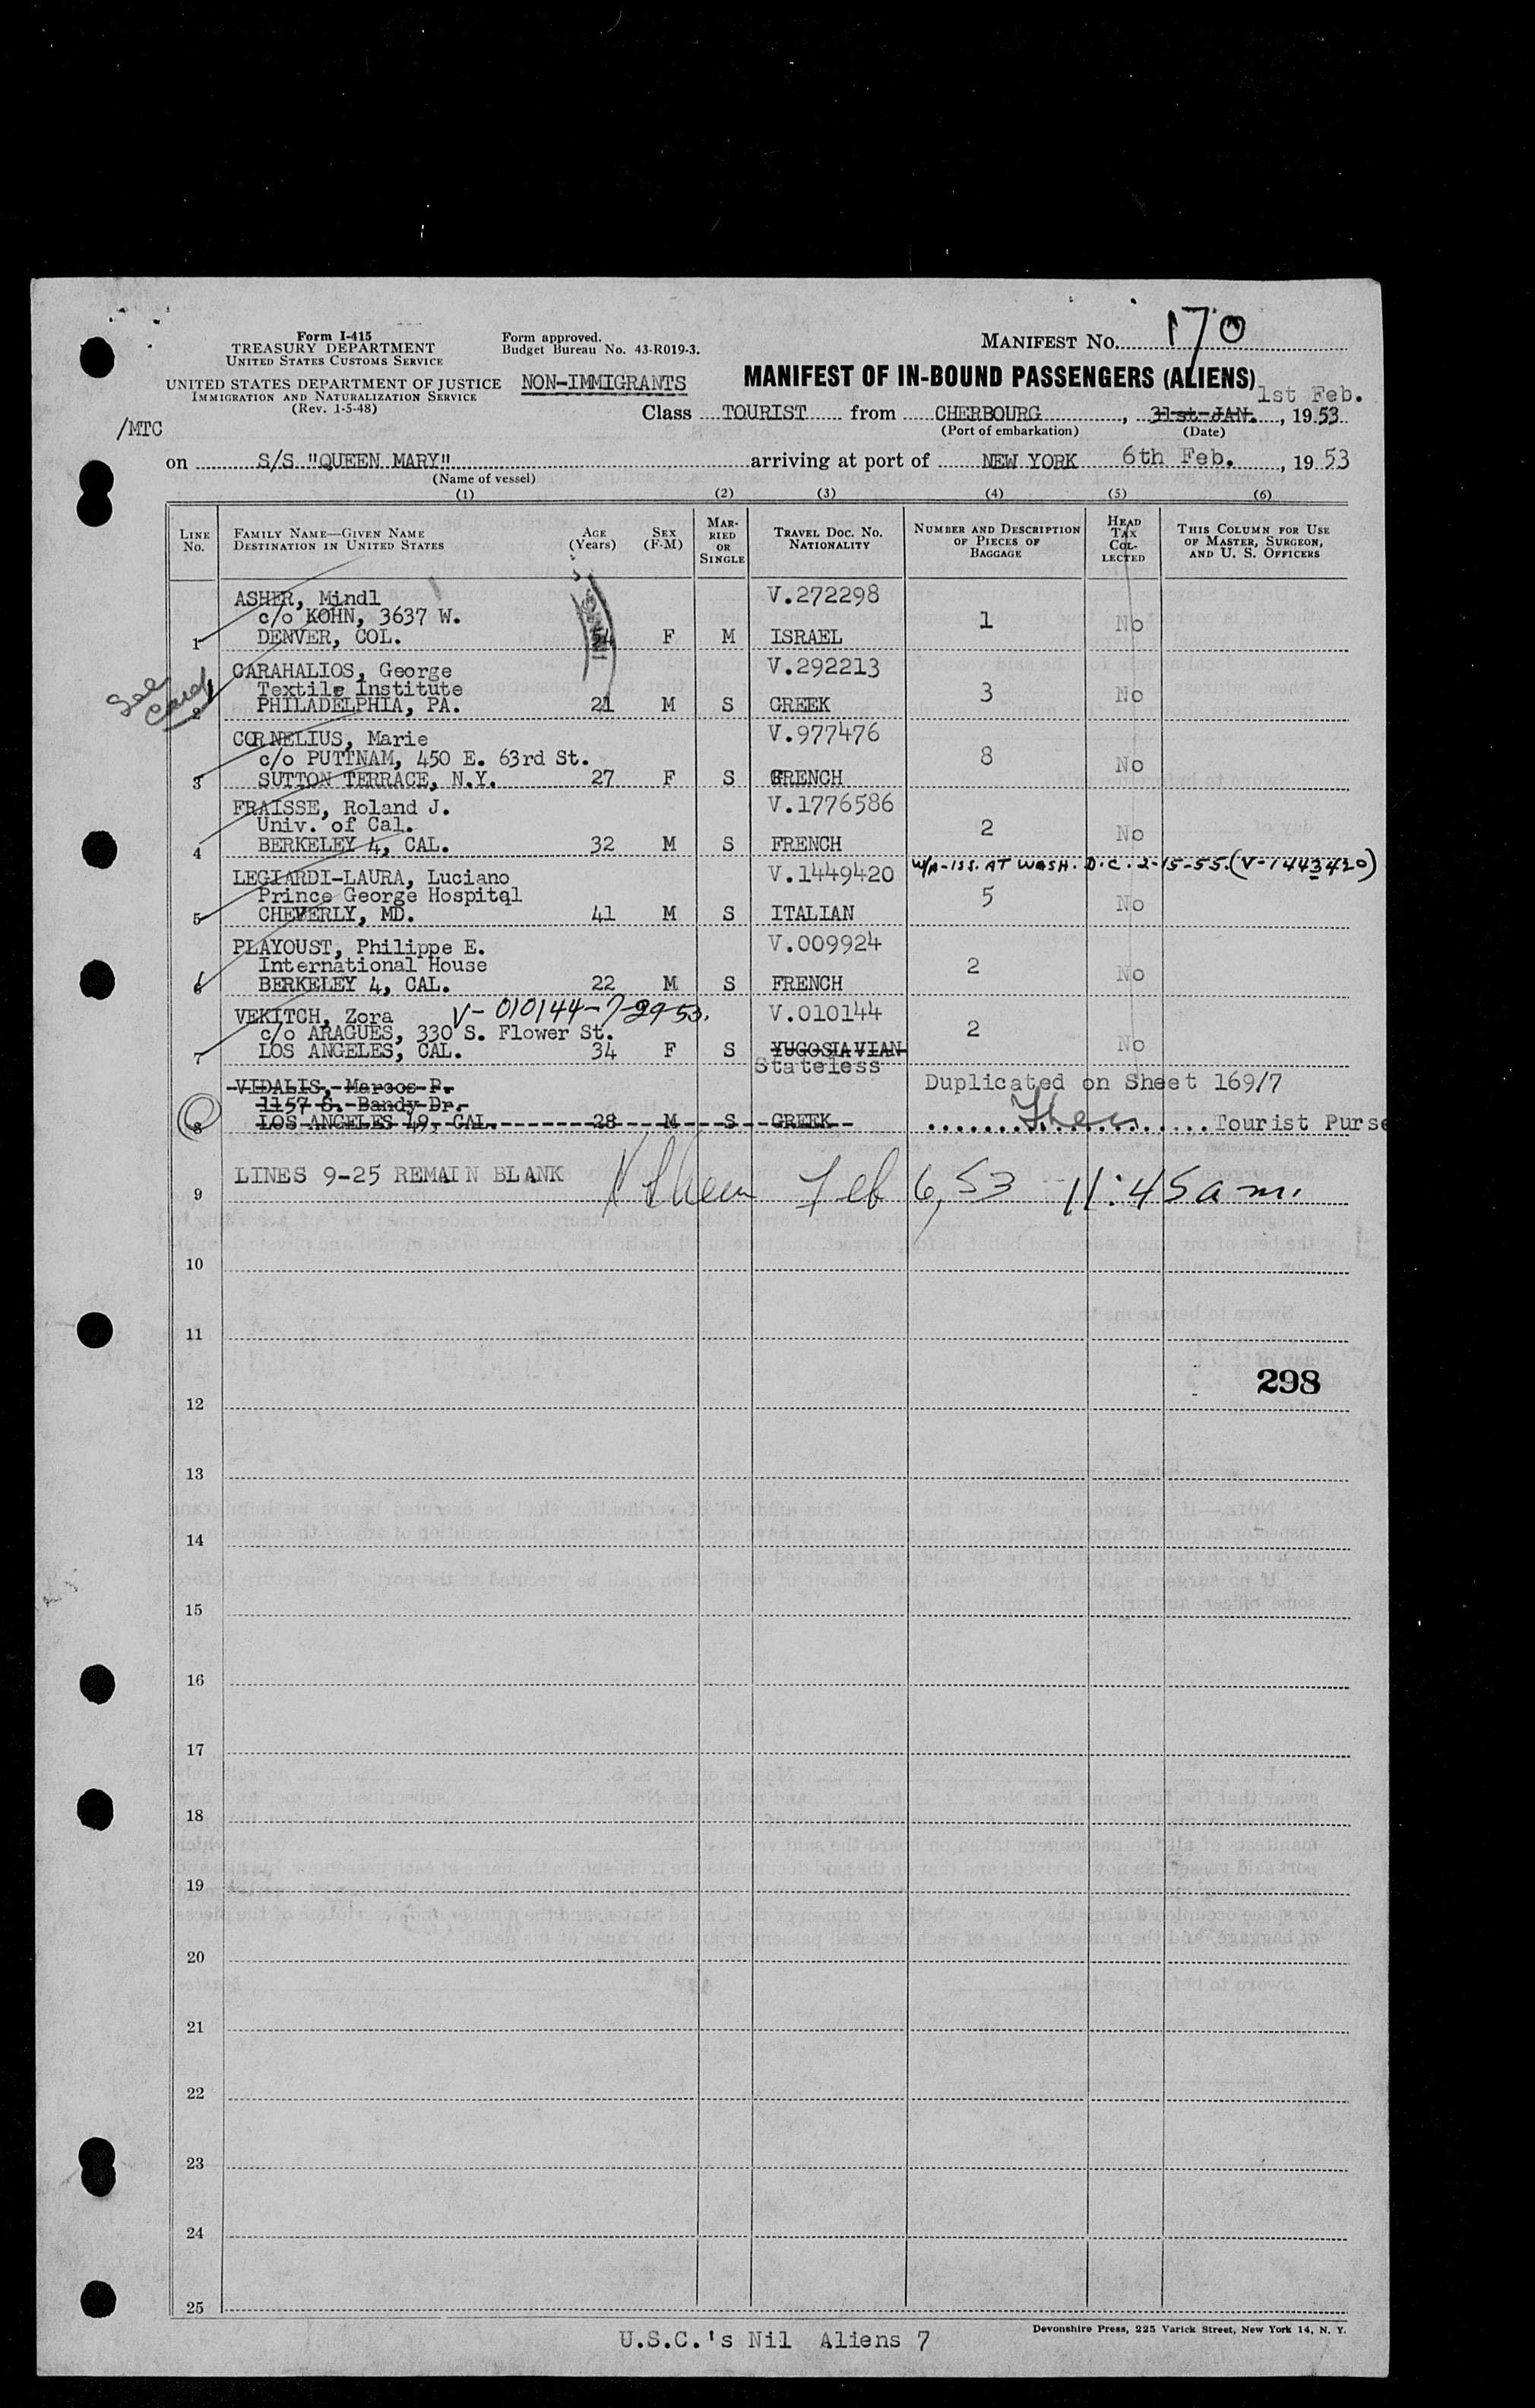 Form I-415
TREASURY DEPARTMENT
UNITED STATES CUSTOMS SERVICE
UNITED STATES DEPARTMENT OF JUSTICE
IMMIGRATION AND NATURALIZATION SERVICE
(Rev. 1-5-48)
/MTC
Form approved.
Budget Bureau No. 43-R019-3.
NON-IMMIGRANTS
MANIFEST NO. 170
MANIFEST OF IN-BOUND PASSENGERS (ALIENS)
1st Feb.
Class TOURIST from CHERBOURG, 31st JAN., 1953
(Port of embarkation) (Date)
on S/S "QUEEN MARY" arriving at port of NEW YORK 6th Feb., 1953
(Name of vessel)
(1) (2) (3) (4) (5) (6)
LINE No. FAMILY NAME—GIVEN NAME DESTINATION IN UNITED STATES AGE (Years) SEX (F-M) MARRIED OR SINGLE TRAVEL DOC. NO. NATIONALITY NUMBER AND DESCRIPTION OF PIECES OF BAGGAGE HEAD TAX COLLECTED THIS COLUMN FOR USE OF MASTER, SURGEON, AND U. S. OFFICERS
ASHER, Mindl V.272298
c/o KOHN, 3637 W. 1 No
1 DENVER, COL. 54 F M ISRAEL
See Card
CARAHALIOS, George V.292213
Textile Institute 3 No
2 PHILADELPHIA, PA. 21 M S GREEK
CORNELIUS, Marie V.977476
c/o PUTTNAM, 450 E. 63rd St. 8 No
3 SUTTON TERRACE, N.Y. 27 F S FRENCH
FRAISSE, Roland J. V.1776586
Univ. of Cal. 2 No
4 BERKELEY 4, CAL. 32 M S FRENCH
W/A-ISS. AT WASH. D.C. 2-15-55. (V-1443420)
LEGIARDI-LAURA, Luciano V.1449420
Prince George Hospital 5 No
5 CHEVERLY, MD. 41 M S ITALIAN
PLAYOUST, Philippe E. V.009924
International House 2 No
6 BERKELEY 4, CAL. 22 M S FRENCH
VEKITCH, Zora V-010144-7-29-53. V.010144
c/o ARAGUES, 330 S. Flower St. 2 No
7 LOS ANGELES, CAL. 34 F S YUGOSLAVIAN
Stateless
VIDALIS, Marcos P. Duplicated on Sheet 169/7
1157 S. Bandy Dr.
8 LOS ANGELES 49, CAL. 28 M S GREEK Tourist Purse
LINES 9-25 REMAIN BLANK
9 Feb 6, 53 11:45 a m.
10
11
298
12
13
14
15
16
17
18
19
20
21
22
23
24
25
U.S.C.'s Nil Aliens 7
Devonshire Press, 225 Varick Street, New York 14, N. Y.